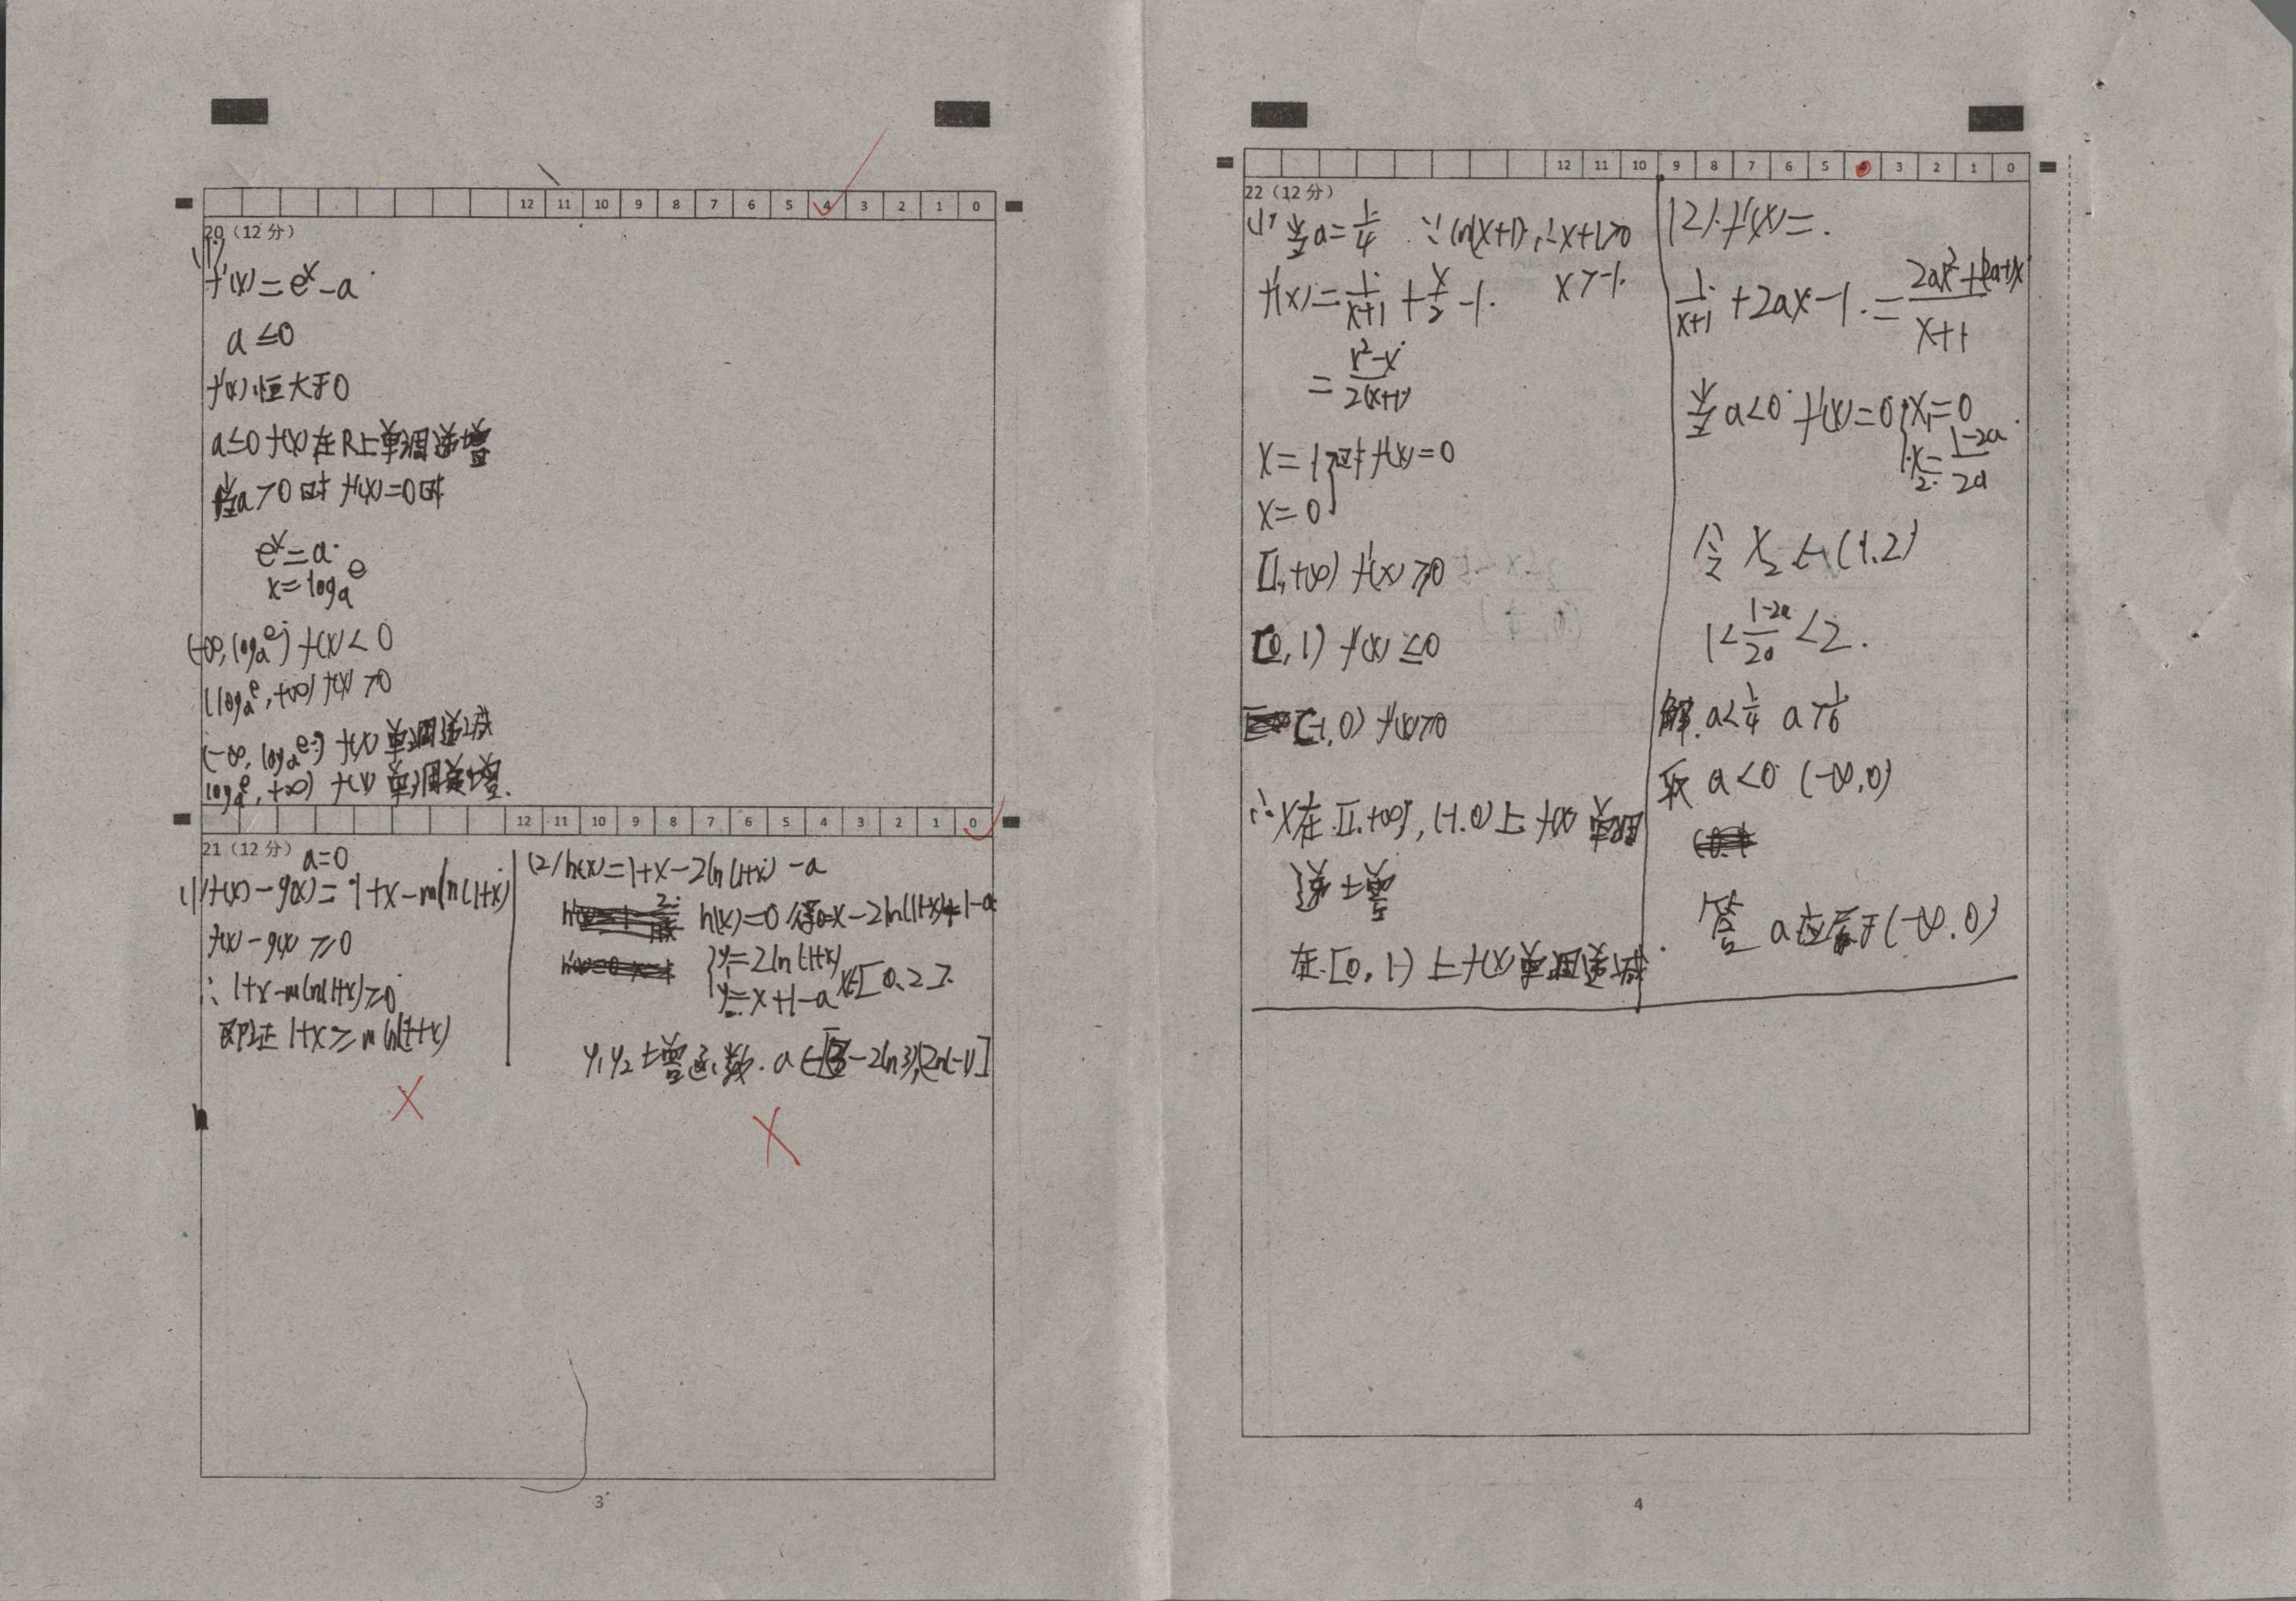 12 11 10 9 8 7 6 5 4 3 2 1 0
20（12 分）
(1)
f'(x)=e^x-a
a≤0
f'(x)恒大于0
a≤0 f(x)在R上单调递增
当a>0时 f'(x)=0时
e^x=a
x=log_a^e
(-∞,log_a^e) f'(x)<0
(log_a^e,+∞) f'(x)>0
(-∞,log_a^e) f(x)单调递减
log_a^e,+∞) f(x)单调递增.
12 11 10 9 8 7 6 5 4 3 2 1 0
21（12 分）
a=0
(1) f(x)-g(x)=1+x-mln(1+x)
f(x)-g(x)≥0
∴1+x-mln(1+x)≥0
即证1+x≥mln(1+x)
(2) h(x)=1+x-2ln(1+x)-a
h(x)=0 得0=x-2ln(1+x)+1-a
y₁=2ln(1+x)
y₂=x+1-a x∈[0,2].
y₁y₂增函数. a∈
3
12 11 10 9 8 7 6 5 4 3 2 1 0
22（12 分）
(1) 当a=1/4 ∵ln(x+1),∴x+1>0
f'(x)=1/(x+1)+x/2-1. x>-1.
=(x²-x)/2(x+1)
x=1时f'(x)=0
x=0
[1,+∞) f'(x)≥0
[0,1) f'(x)≤0
(-1,0) f'(x)≥0
∴x在[1,+∞),(-1,0)上f(x)单调
递增
在[0,1)上f(x)单调递减
(2) f'(x)=.
1/(x+1)+2ax-1=(2ax²+(2a-1)x)/(x+1)
当a<0 f'(x)=0 x₁=0
x₂=(1-2a)/2a
令x₂∈(1,2)
1<(1-2a)/2a<2.
解.a<1/4 a>1/6
取a<0 (-∞,0)
答 a应属于(-∞,0)
4